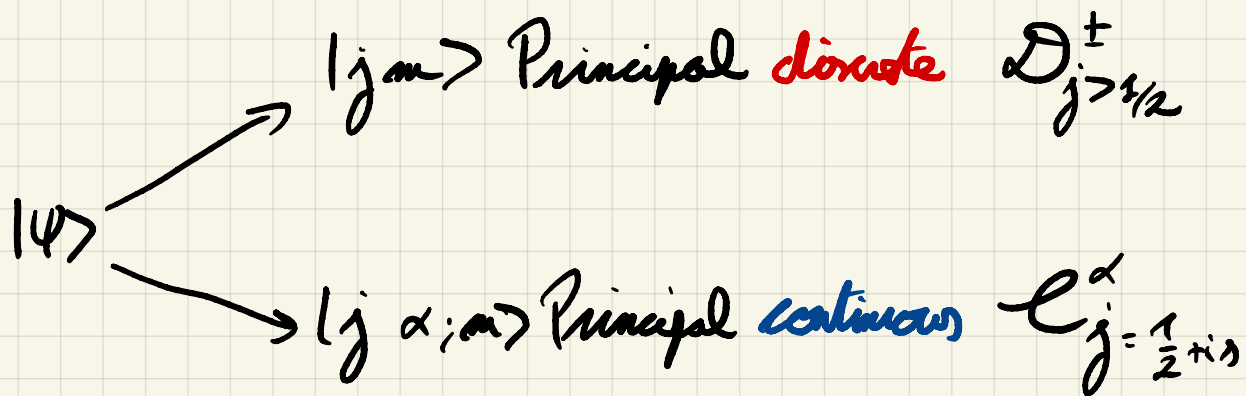 |j m> Principal discrete 𝒟^±_{j>1/2}
|ψ>
|j α;m> Principal continuous 𝒞^α_{j=1/2+is}